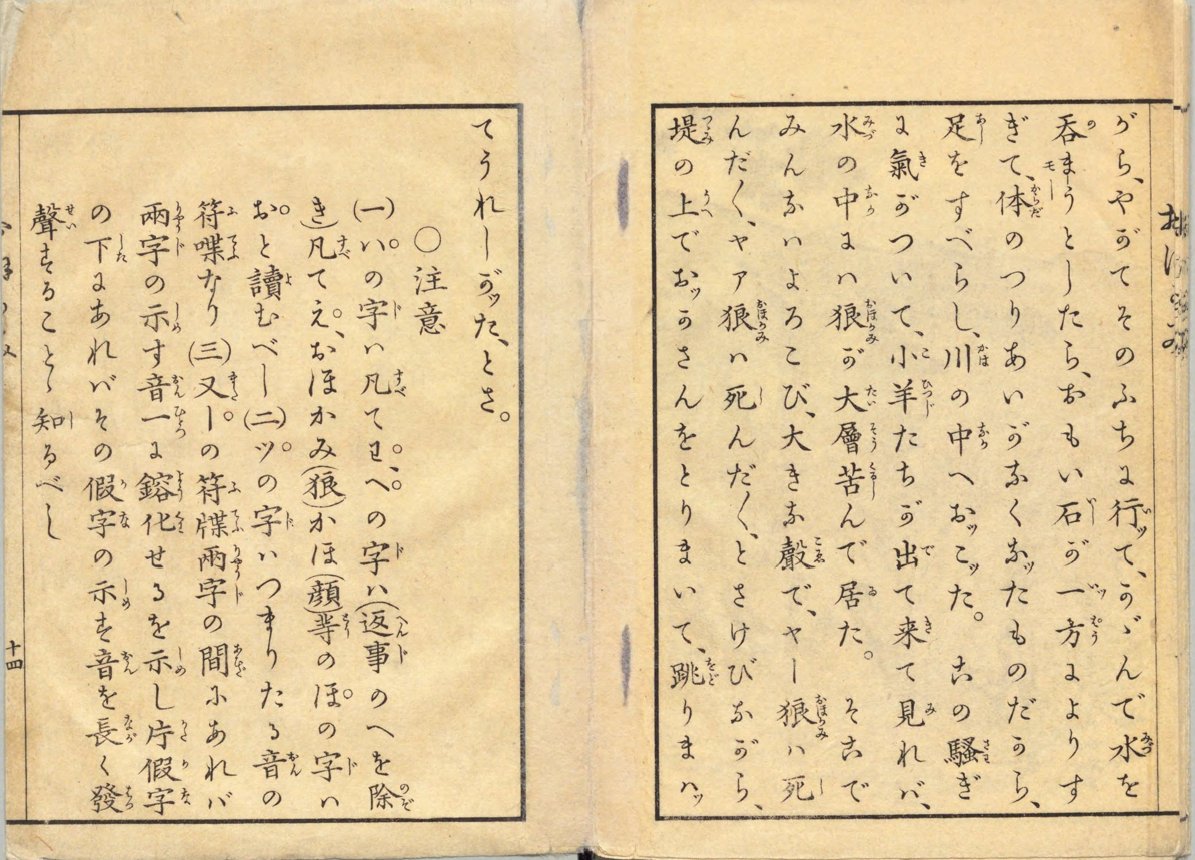 がら、やがてそのふちに行ッて、かゞんで水を
呑まうとしたら、おもい石が一方によりす
ぎて、体のつりあいがなくなッたものだから、
足をすべらし、川の中へおッこッた。この騒ぎ
に氣がついて、小羊たちが出て来て見れバ、
水の中にハ狼が大層苦んで居た。そこで
みんなハよろこび、大きな聲で、ヤー狼ハ死
んだ〳〵、ヤァ狼ハ死んだ〳〵、とさけびながら、
堤の上でおッかさんをとりまいて、跳りまハッ
てうれしがッた、とさ。
〇注意
(一)ハの字ハ凡てワ、への字ハ(返事のへを除
き)凡てえ、おほかみ(狼)かほ(顔)等のほの字ハ
おと讀むべし(二)ッの字ハつまりたる音の
符喋なり(三)又ーの符牒兩字の間にあれバ
兩字の示す音一に鎔化せるを示し片假字
の下にあれバその假字の示す音を長く發
聲することゝ知るべし
十四